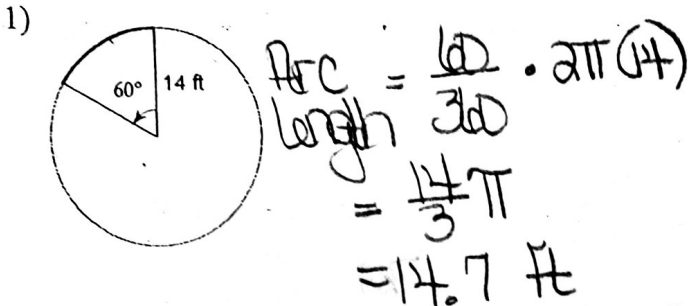 1)
60° 14 ft
Arc length = 60/360 · 2π(14)
= 14/3 π
= 14.7 ft